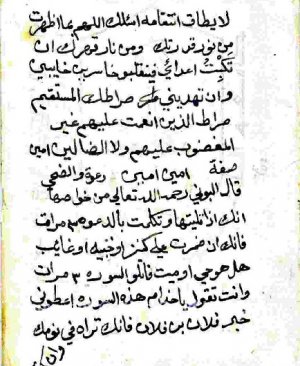 لا يطاف انتقامه اسئلك اللهم بما اظهرت
من نور قدرتك ومن نار قهرك ان
تكبت اعدائي فينقلبو خاسرين خايبين
وان تهديني صراطك المستقيم
صراط الذين انعمت عليهم غير
المغضوب عليهم ولا الضالين امين
صفة امين امين دعوة والضحي
قال البوني رحمه الله تعالي من خواصها
انك اذا تليتها وتكلمت بالدعوه مرات
فانك ان ضمرت علي كنز او خبيه او غايب
هل هو حي او ميت فاتلو السوره ٣ مرات
وانت تقول يا خدام هذه السوره اعطوني
خبر فلان بن فلان فانك تراه في نومك